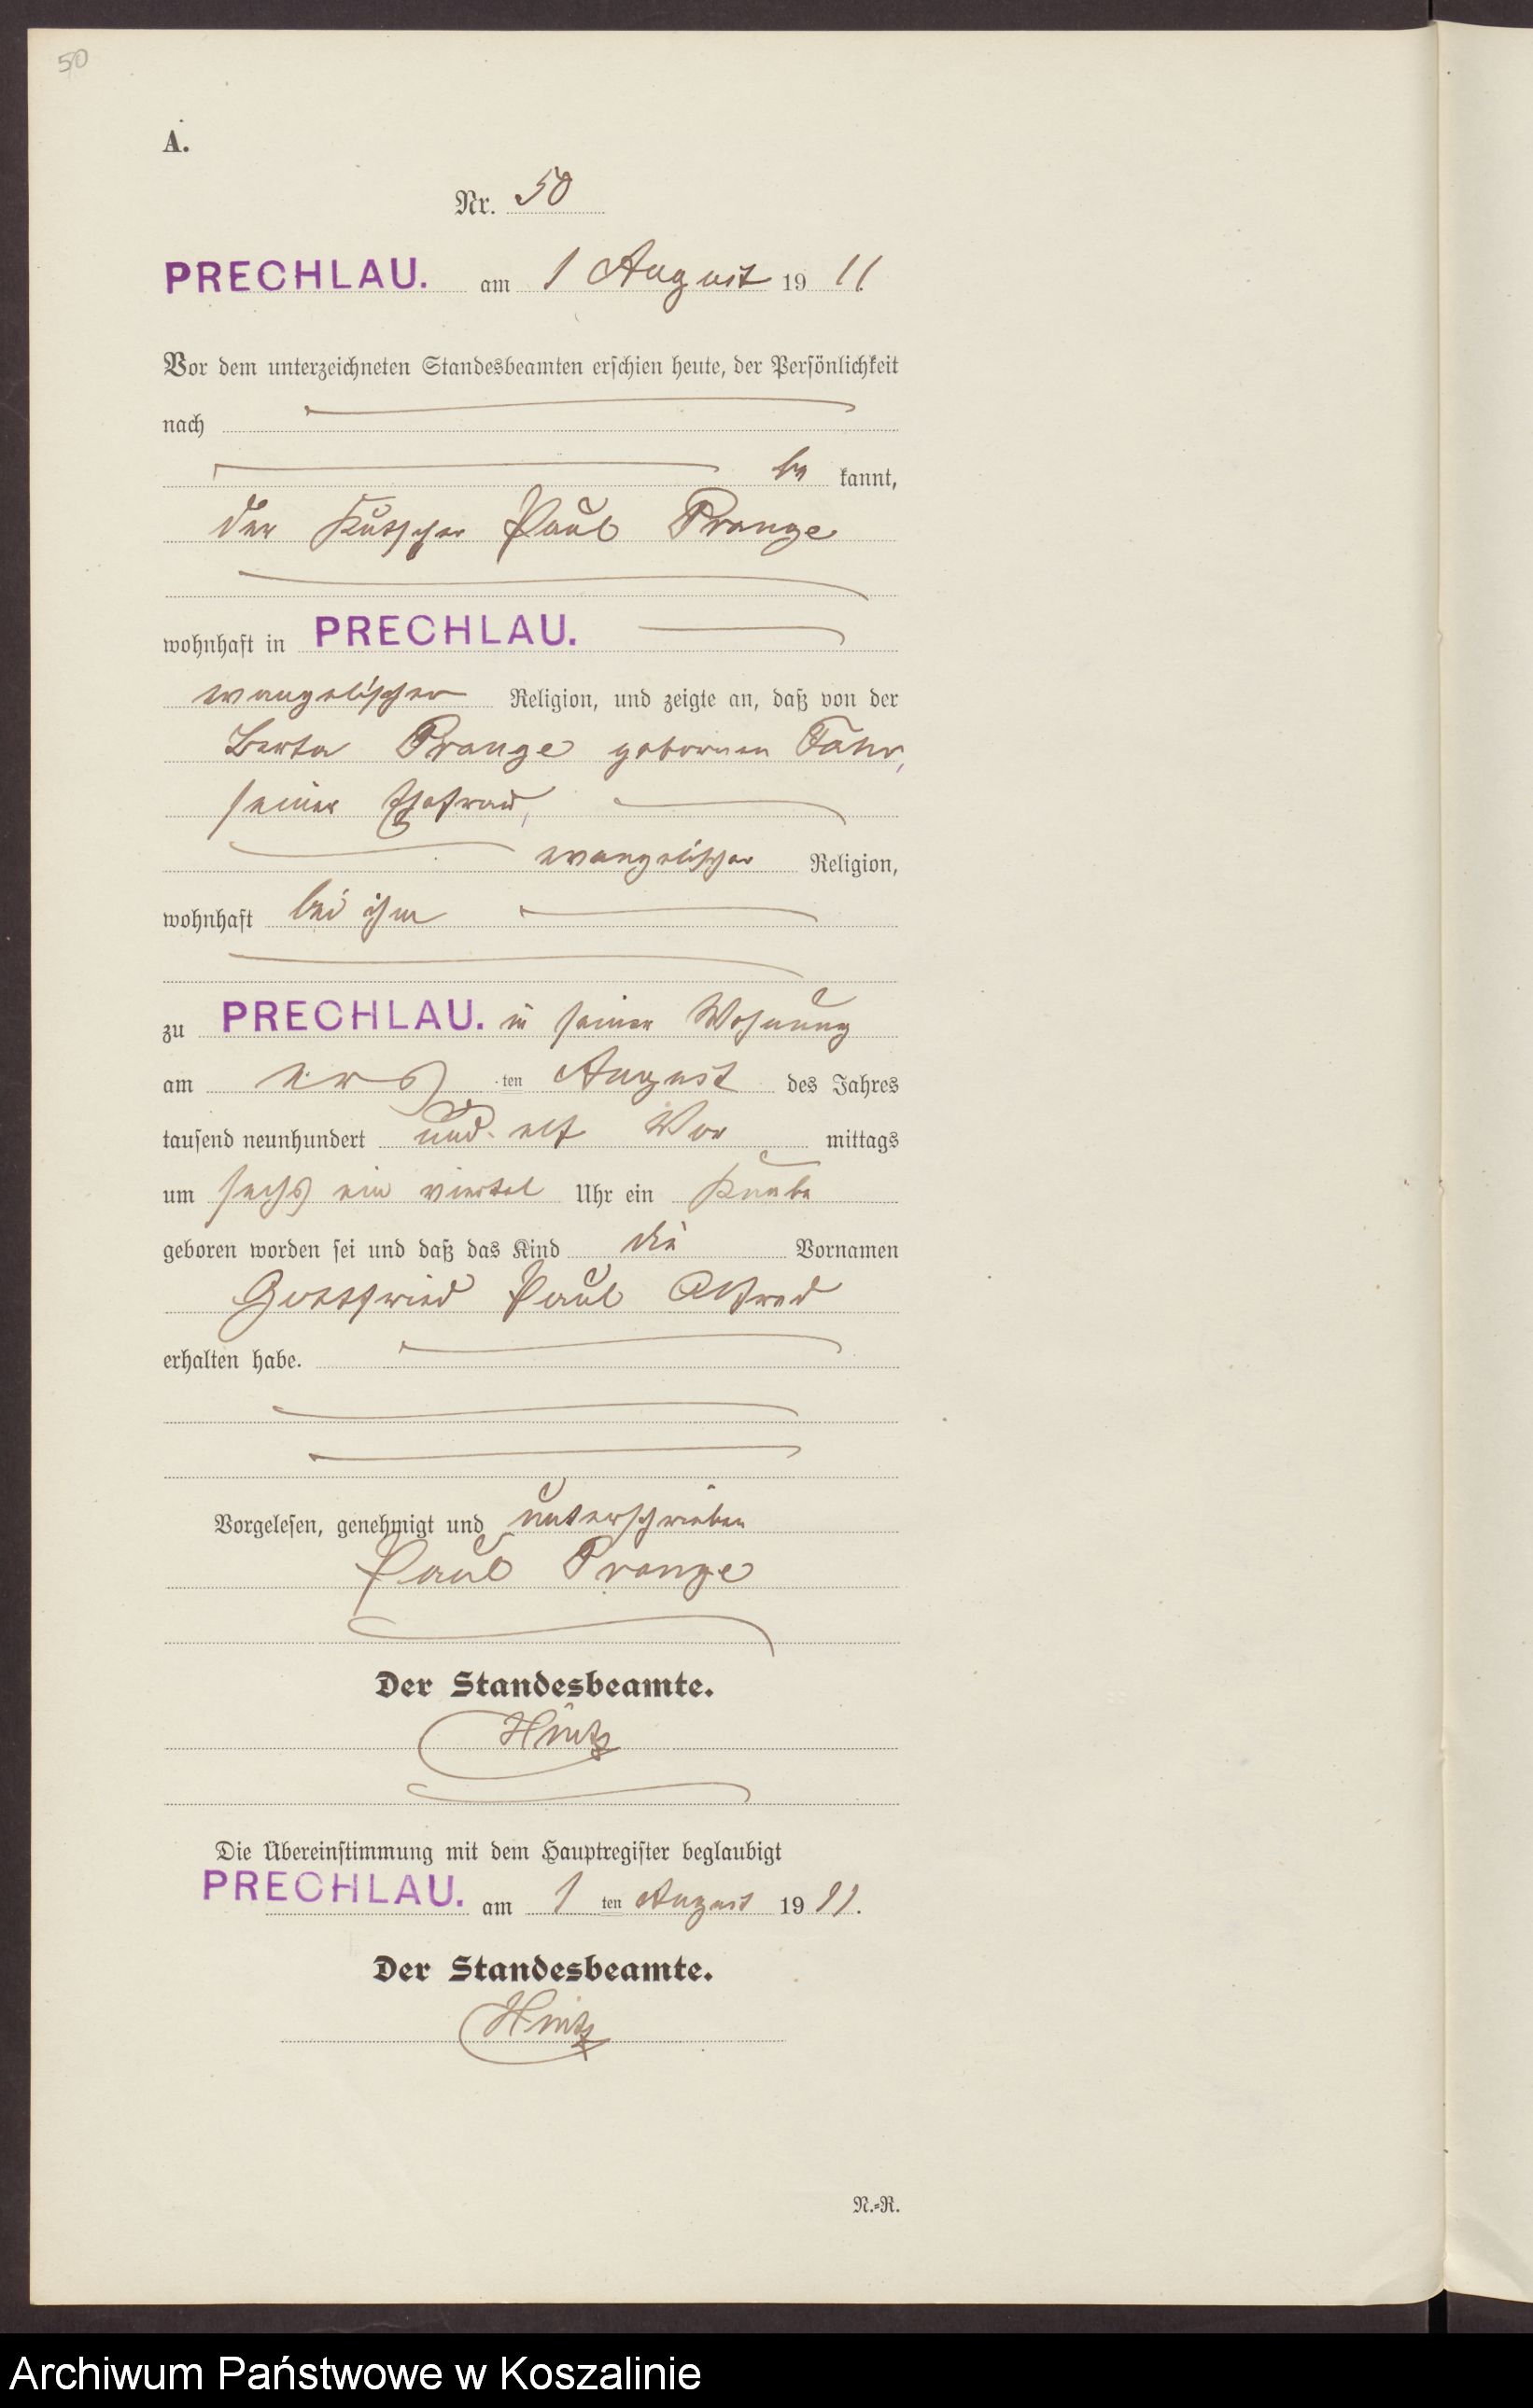 50
A.
Nr. 50
PRECHLAU. am 1 August 19 11
Vor dem unterzeichneten Standesbeamten erschien heute, der Persönlichkeit
nach
be kannt,
der Kutscher Paul Prange
wohnhaft in PRECHLAU.
evangelischer Religion, und zeigte an, daß von der
Berta Prange geborenen
seiner Ehefrau,
evangelischer Religion,
wohnhaft bei ihm
zu PRECHLAU. in seiner Wohnung
am ersten August des Jahres
tausend neunhundert und elf Vor mittags
um sechs ein viertel Uhr ein Knabe
geboren worden sei und daß das Kind die Vornamen
Gottfried Paul Alfred
erhalten habe.
Vorgelesen, genehmigt und unterschrieben
Paul Prange
Der Standesbeamte.
Hintz
Die Übereinstimmung mit dem Hauptregister beglaubigt
PRECHLAU. am 1 ten August 19 11.
Der Standesbeamte.
Hintz
N.-R.
Archiwum Państwowe w Koszalinie